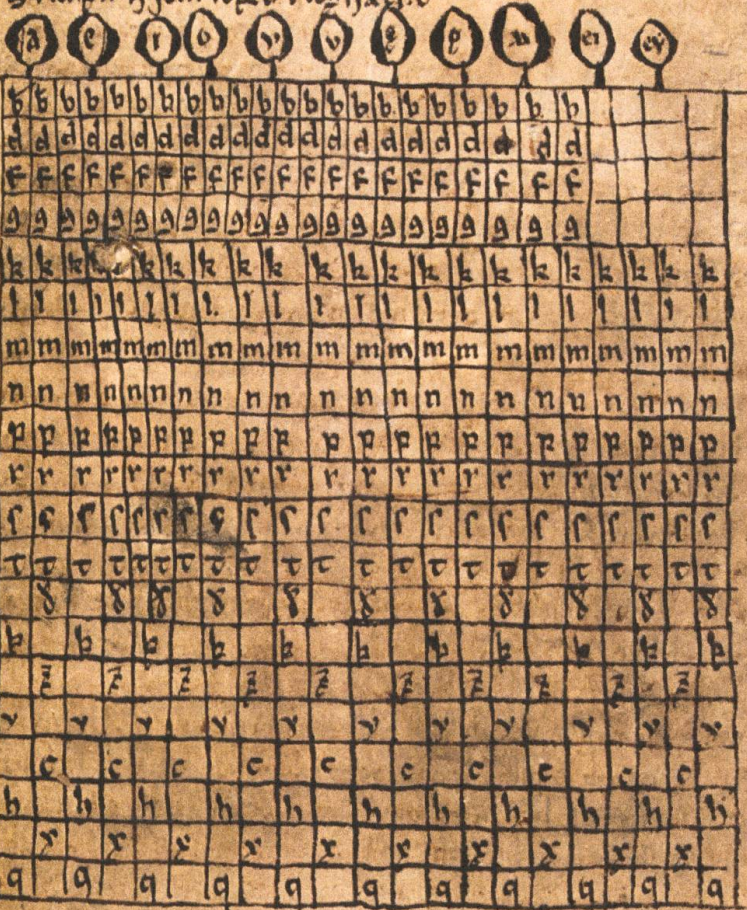 a e ı o v v ę ę au eı ey
b b b b b b b b b b b b b b b b b b b b b b
d d d d d d d d d d d d d d d d d d d d d d
f f f f f f f f f f f f f f f f f f f f f f
g g g g g g g g g g g g g g g g g g g g g g
k k k k k k k k k k k k k k k k k k k k
l l l l l l l l l l l l l l l l l l l l l l
m m m m m m m m m m m m m m m m m m m m m m
n n n n n n n n n n n n n n n n n n n n n n
p p p p p p p p p p p p p p p p p p p p p p
r r r r r r r r r r r r r r r r r r r r r r
ſ ſ ſ ſ ſ ſ ſ ſ ſ ſ ſ ſ ſ ſ ſ ſ ſ ſ ſ ſ ſ ſ
t t t t t t t t t t t t t t t t t t t t t t
ð ð ð ð ð ð ð ð ð ð ð
þ þ þ þ þ þ þ þ þ þ þ
z z z z z z z z z z
v v v v v v v v v v v
c c c c c c c c c c
h h h h h h h h h h h
x x x x x x x x x x
q q q q q q q q q q q